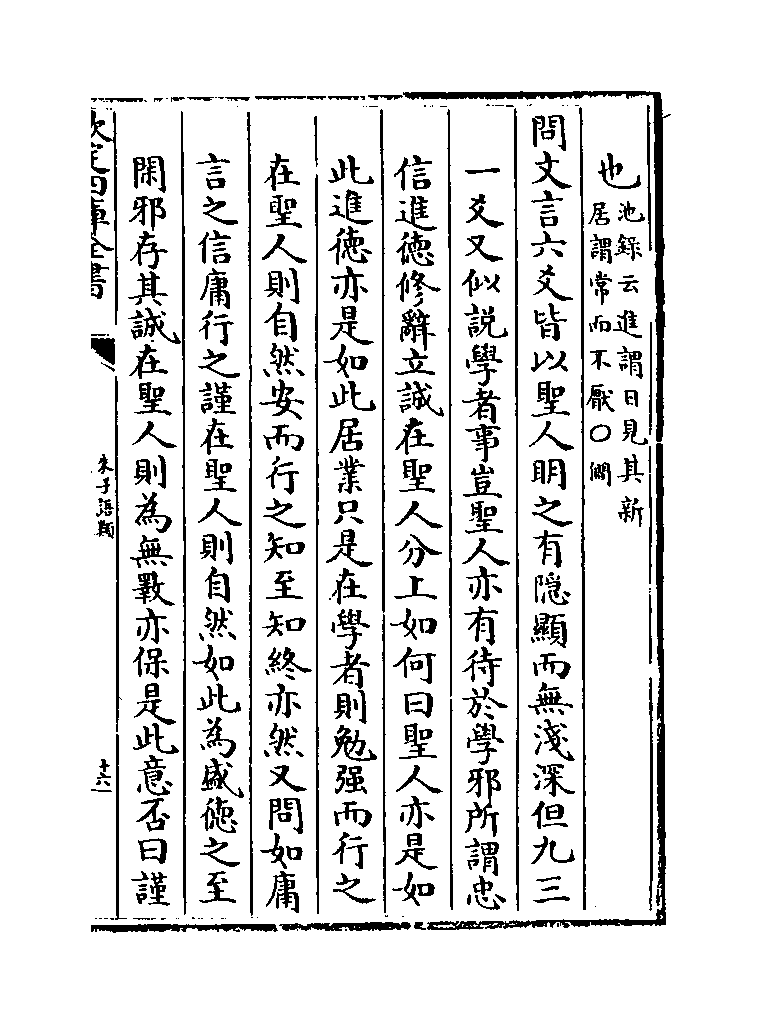 也池錄云進謂日見其新
居謂常而不厭○㽦
問文言六爻皆以聖人明之有隠顯而無淺深但九三
一爻又似説學者事豈聖人亦有待於學邪所謂忠
信進徳修辭立誠在聖人分上如何曰聖人亦是如
此進徳亦是如此居業只是在學者則勉强而行之
在聖人則自然安而行之知至知終亦然又問如庸
言之信庸行之謹在聖人則自然如此為盛徳之至
閑邪存其誠在聖人則為無斁亦保是此意否曰謹
欽定四庫全書
朱子語類
十六